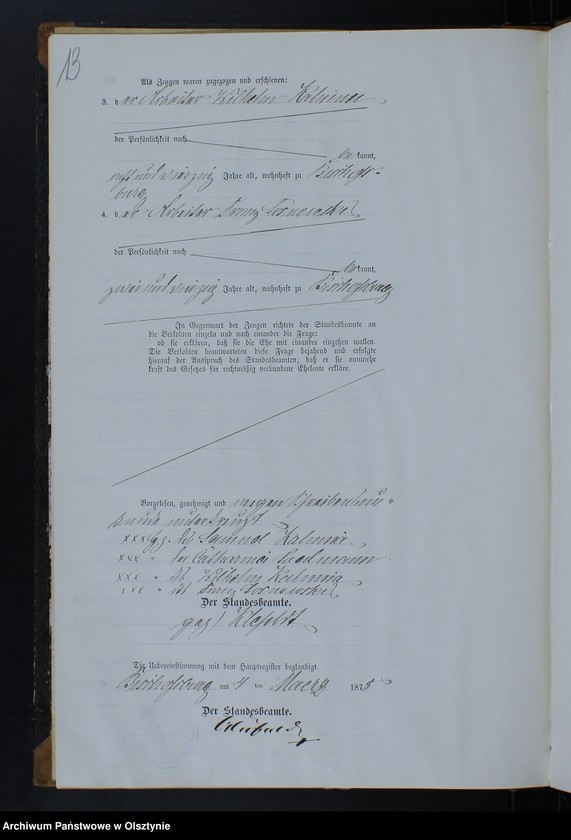 13
Als Zeugen waren zugezogen und erschienen:
3. der Arbeiter Wilhelm Kalinna
der Persönlichkeit nach
be kannt,
acht und vierzig Jahre alt, wohnhaft zu Bischofs-
burg
4. der Arbeiter Franz
der Persönlichkeit nach
be kannt,
zwei und vierzig Jahre alt, wohnhaft zu Bischofsburg
In Gegenwart der Zeugen richtete der Standesbeamte an
die Verlobten einzeln und nach einander die Frage:
ob sie erklären, daß sie die Ehe mit einander eingehen wollen.
Die Verlobten beantworteten diese Frage bejahend und erfolgte
hierauf der Ausspruch des Standesbeamten, daß er sie nunmehr
kraft des Gesetzes für rechtmäßig verbundene Eheleute erkläre.
Vorgelesen, genehmigt und wegen Schreibensun-
kunde unterkreuzt
xxx des Samuel Kalinna
xxx " der Catharina
xxx " des Wilhelm Kalinna
xxx " des Franz
Der Standesbeamte.
gez)
Die Uebereinstimmung mit dem Hauptregister beglaubigt.
Bischofsburg am 4 ten Maerz 1875
Der Standesbeamte.
Archiwum Państwowe w Olsztynie